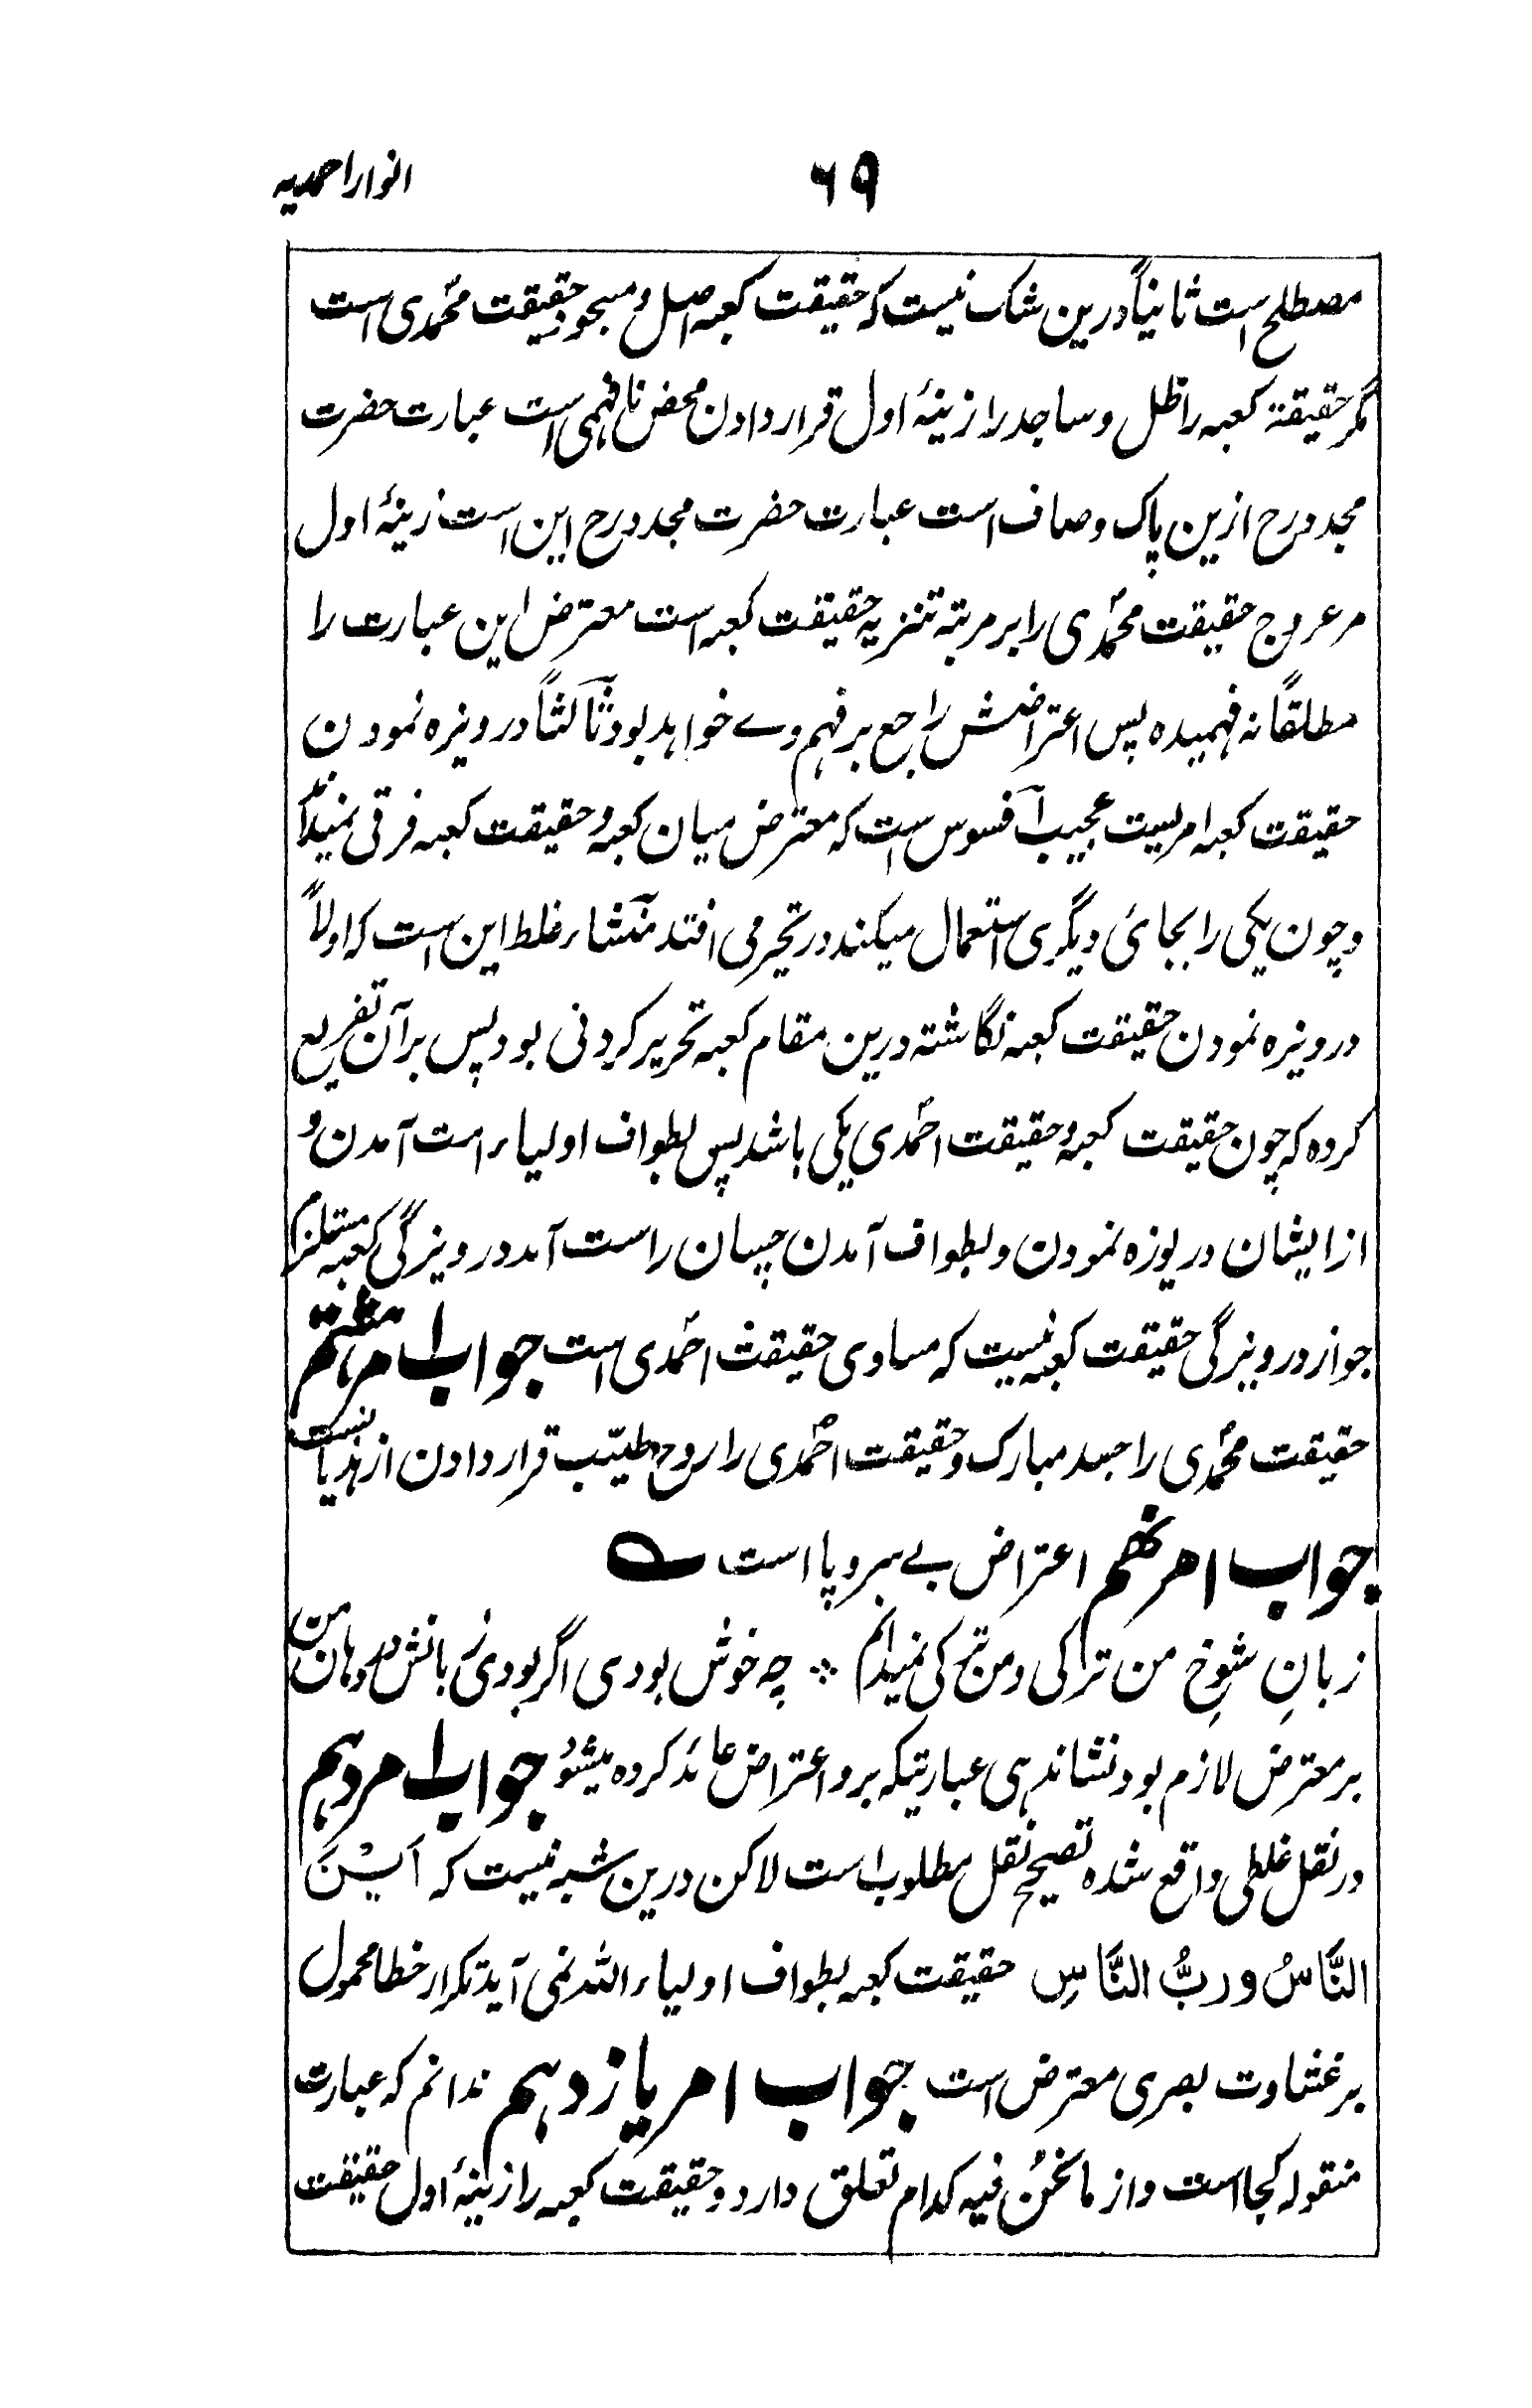 انوار احمدیہ
۶۹
مصطلح است ثانیاً درین شک نیست کہ حقیقت کعبہ اصل و مسجود حقیقت محمدی است
مگر حقیقۃ کعبہ را ظل و ساجد را زینۂ اول قرار دادن محض نافہمی است عبارت حضرت
مجدد رح ازین پاک و صاف است عبارت حضرت مجدد رح این است زینۂ اول
مر عروج حقیقت محمدی را بر مرتبہ تنزیہ حقیقت کعبہ است معترض این عبارت را
مطلقاً نہ فہمیدہ پس اعتراضش راجع بر فہم وے خواہد بود ثالثاً درویزہ نمودن
حقیقت کعبہ امریست عجیب افسوس است کہ معترض میان کعبہ و حقیقت کعبہ فرقی نمیداند
و چون یکی را بجائ دیگری استعمال میکند در تحیر می افتد منشاء غلط این است کہ اولاً
درویزہ نمودن حقیقت کعبہ نگاشتہ درین مقام کعبہ تحریر کردنی بود پس برآن تفریع
کردہ کہ چون حقیقت کعبہ و حقیقت احمدی یکی باشد پس بطواف اولیاء امت آمدن و
از ایشان دریوزہ نمودن و بطواف آمدن چسپان راست آمد درویزگی کعبہ مستلزم
جواز درویزگی حقیقت کعبہ نیست کہ مساوی حقیقت احمدی است جواب امر ہشتم
حقیقت محمدی را جسد مبارک و حقیقت احمدی را روح طیّب قرار دادن از ہذیانست
جواب امر نہم اعتراض بے سر و پا است ؎
زبانِ شوخِ من ترکی و من ترکی نمیدانم ؞ چہ خوش بودی اگر بودی زبانش در دہان من
بر معترض لازم بود نشاندہی عبارتیکہ برو اعتراض عائد کردہ میشود جواب امر دہم
در نقل غلطی واقع شدہ تصحیح نقل مطلوب است لاکن درین شبہ نیست کہ اَیْنَ
النَّاسُ و ربُّ النَّاسِ حقیقت کعبہ بطواف اولیاء اللہ نمی آید تکرار خطا محمول
بر غشاوت بصری معترض است جواب امر یازدہم ندانم کہ عبارت
منقولہ کجا است و از ما نحنُ فیہ کدام تعلق دارد و حقیقت کعبہ را زینۂ اول حقیقت